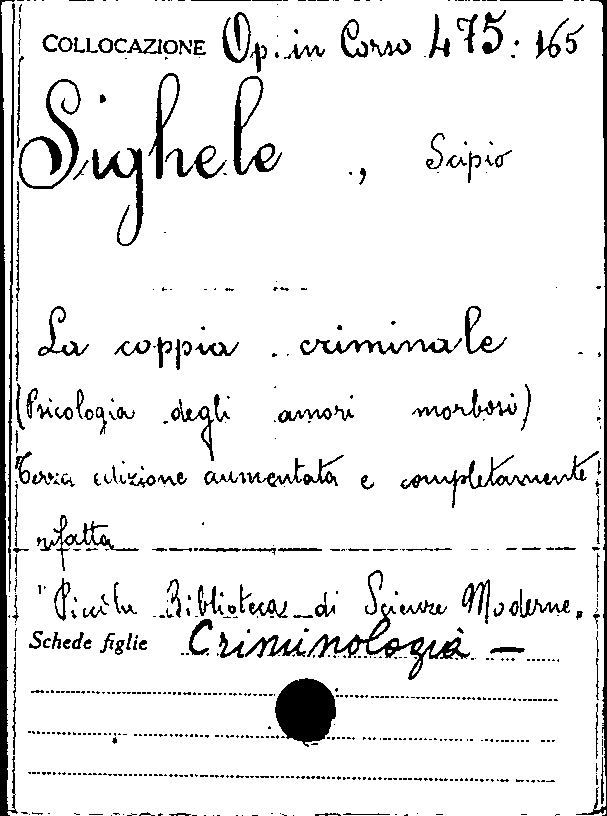 COLLOCAZIONE Op. in Corso 475:165
Sighele, Scipio
La coppia criminale
(Psicologia degli amori morbosi)
Terza edizione aumentata e completamente
rifatta
"Piccola Biblioteca di Scienze Moderne.
Schede figlie Criminologia —